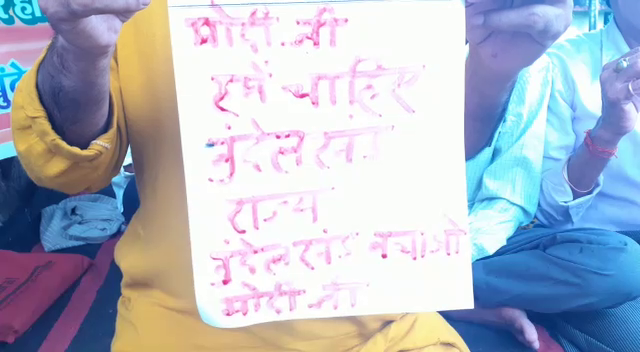 मोदी जी
हमें चाहिए
बुंदेलखंड
राज्य
बुंदेलखंड बचाओ
मोदी जी